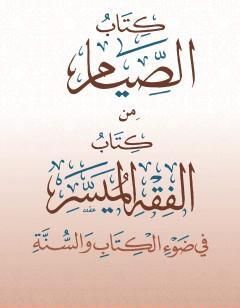 كِتَابُ
الصِّيَامِ
مِن
كِتَابُ
الفِقْهِ المُيَسَّرِ
فِي ضَوْءِ الْكِتَابِ وَالسُّنَّةِ